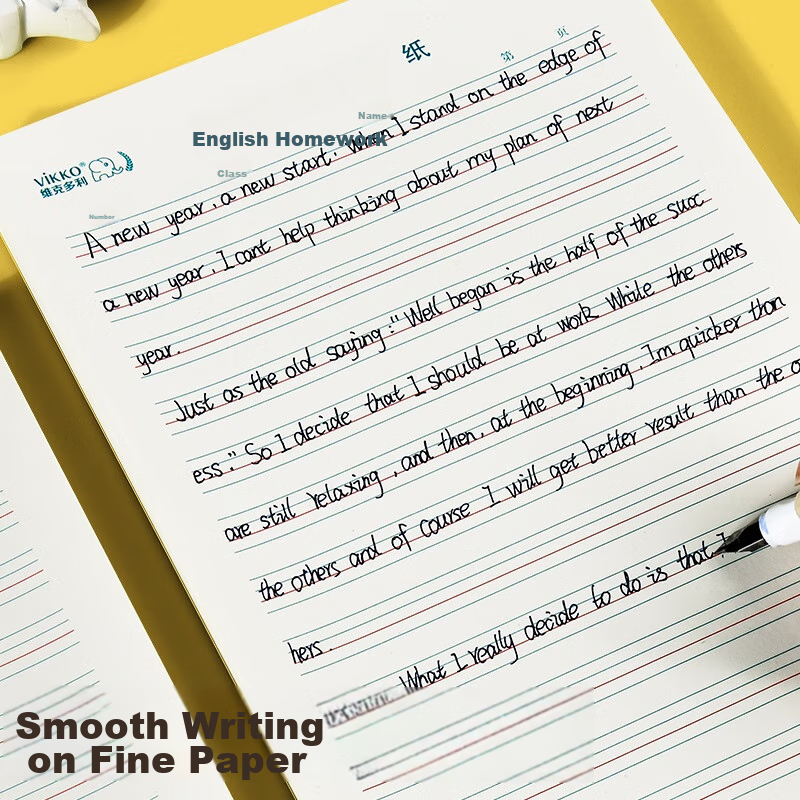 纸
第 页
Name
English Homework
Class
Number
VIKKO®
维克多利
A new year, a new start. When I stand on the edge of
a new year, I cant help thinking about my plan of next
year.
Just as the old saying :" Well began is the half of the succ
ess." So I decide that I should be at work While the others
are still relaxing, and then, at the beginning, Im quicker than
the others and of course I will get better result than the o
hers.
What I really decide to do is that I
Smooth Writing
on Fine Paper